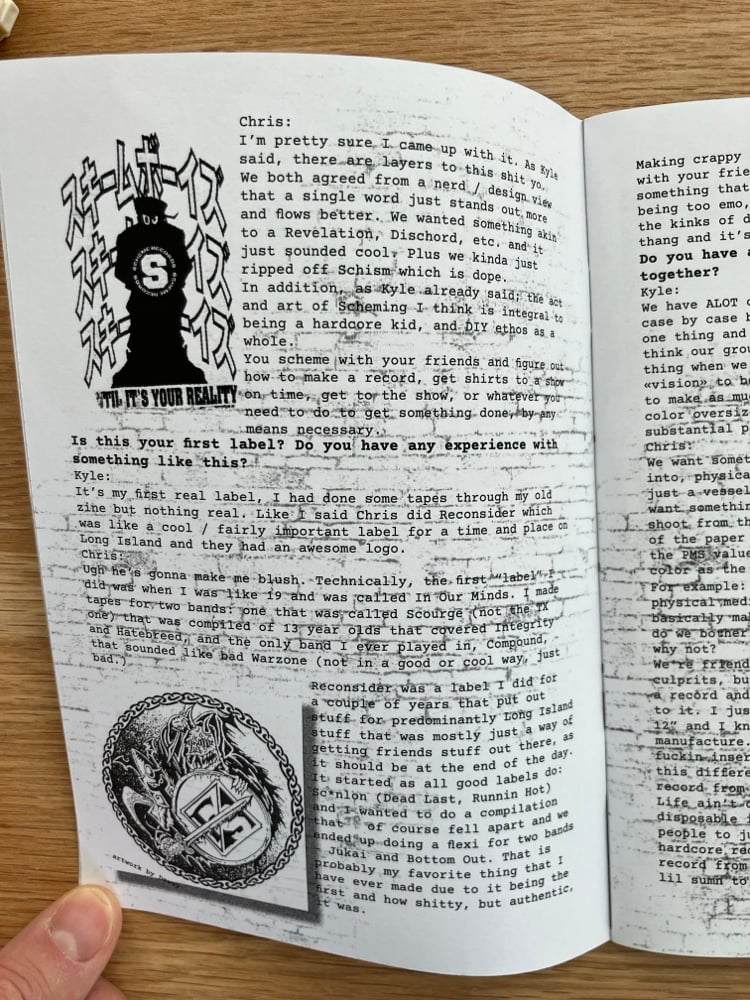 Chris:
I'm pretty sure I came up with it. As Kyle
said, there are layers to this shit yo.
We both agreed from a nerd / design view
that a single word just stands out more
and flows better. We wanted something akin
to a Revelation, Dischord, etc. and it
just sounded cool. Plus we kinda just
ripped off Schism which is dope.
In addition, as Kyle already said; the act
and art of Scheming I think is integral to
being a hardcore kid, and DIY ethos as a
whole.
You scheme with your friends and figure out
how to make a record, get shirts to a show
on time, get to the show, or whatever you
need to do to get something done, by any
means necessary.
スキームボーイズ
スキームボーイズ
スキームボーイズ
SCHEME RECORDS
S
'TIL IT'S YOUR REALITY
Is this your first label? Do you have any experience with
something like this?
Kyle:
It's my first real label, I had done some tapes through my old
zine but nothing real. Like I said Chris did Reconsider which
was like a cool / fairly important label for a time and place on
Long Island and they had an awesome logo.
Chris:
Ugh he's gonna make me blush. Technically, the first "label" I
did was when I was like 19 and was called In Our Minds. I made
tapes for two bands: one that was called Scourge (not the TX
one) that was compiled of 13 year olds that covered Integrity
and Hatebreed, and the only band I ever played in, Compound,
that sounded like bad Warzone (not in a good or cool way, just
bad.)
Reconsider was a label I did for
a couple of years that put out
stuff for predominantly Long Island
stuff that was mostly just a way of
getting friends stuff out there, as
it should be at the end of the day.
It started as all good labels do:
Sc*nlon (Dead Last, Runnin Hot)
and I wanted to do a compilation
that of course fell apart and we
ended up doing a flexi for two bands
- Jukai and Bottom Out. That is
probably my favorite thing that I
have ever made due to it being the
first and how shitty, but authentic,
it was.
artwork by
Making crappy
with your frie
something that
being too emo,
the kinks of d
thang and it's
Do you have a
together?
Kyle:
We have ALOT
case by case b
one thing and
think our grou
thing when we
«vision» to b
to make as mu
color oversiz
substantial p
Chris:
We want somet
into, physica
just a vessel
want somethin
shoot from th
of the paper
the PMS value
color as the
For example:
physical med
basically mak
do we bother
why not?
We're friend
culprits, bu
a record and
to it. I jus
12" and I kn
manufacture.
fuckin inser
this differe
record from
Life ain't
disposable i
people to ju
hardcore rec
record from
lil sumn to